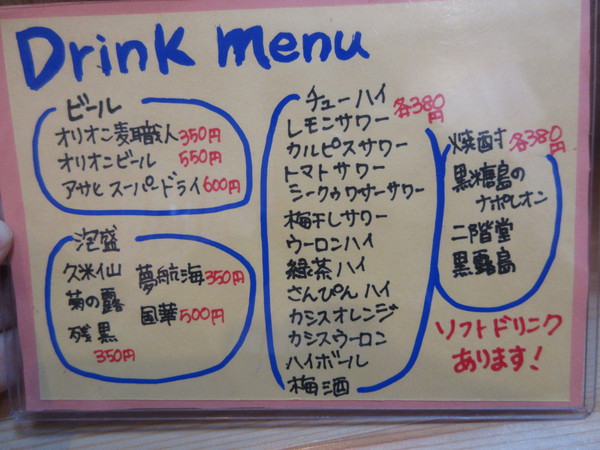 Drink menu
ビール
オリオン麦職人 350円
オリオンビール 550円
アサヒ スーパードライ 600円
泡盛
久米仙
菊の露
残黒
350円
夢航海 350円
国華 500円
チューハイ 各380円
レモンサワー
カルピスサワー
トマトサワー
シークヮサーサワー
梅干しサワー
ウーロンハイ
緑茶ハイ
さんぴんハイ
カシスオレンジ
カシスウーロン
ハイボール
梅酒
焼酎 各380円
黒糖島の
ナポレオン
二階堂
黒霧島
ソフトドリンク
あります!